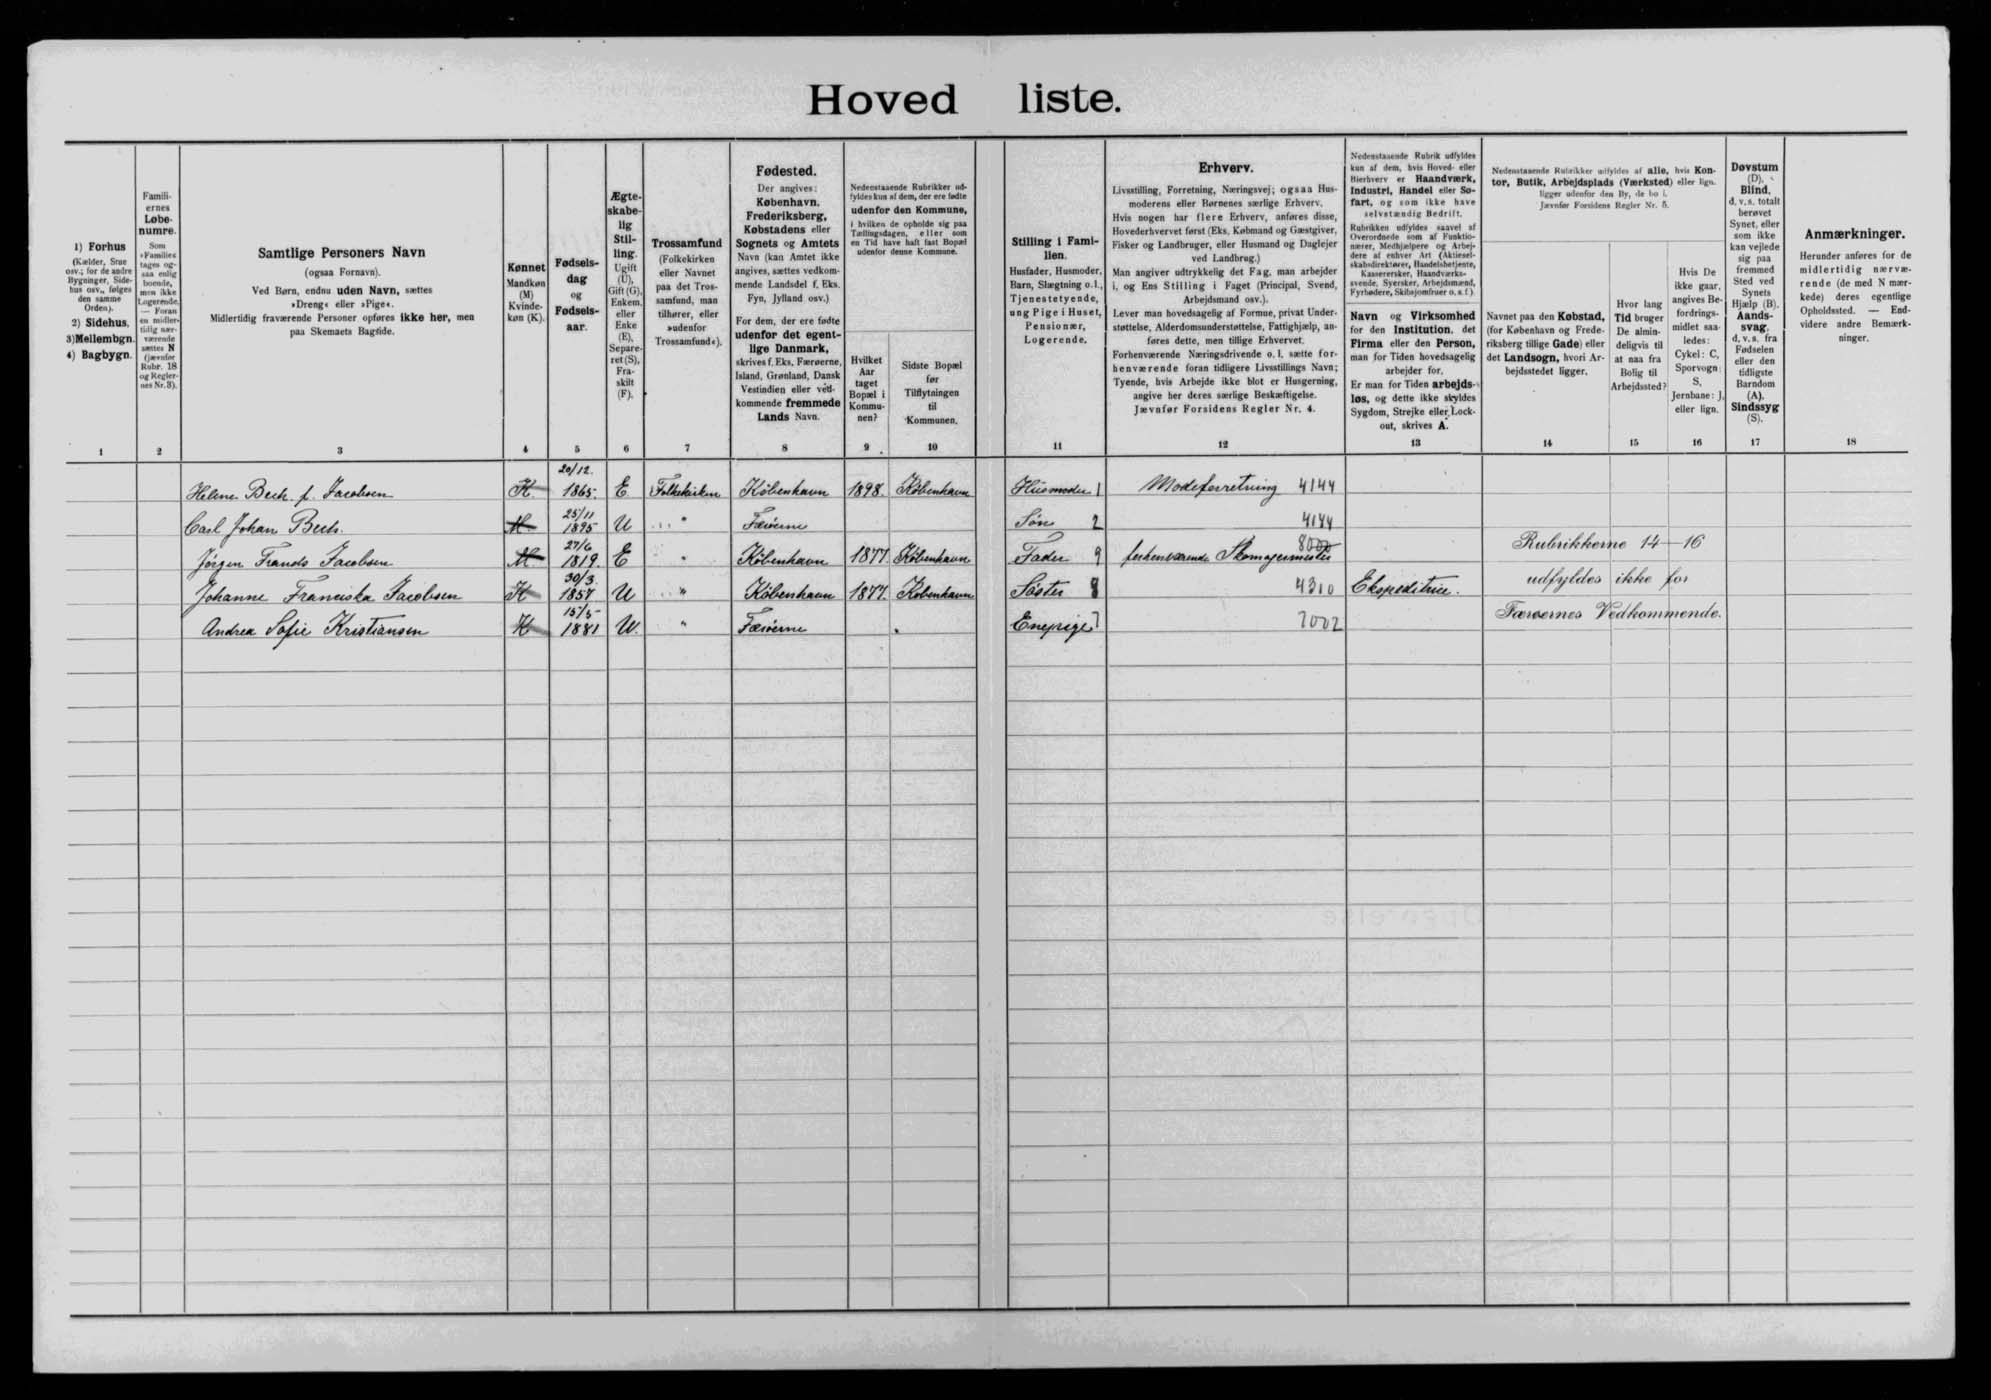 Hoved liste.
1) Forhus
(Kælder, Stue
osv.; for de andre
Bygninger, Side-
hus osv., følges
den samme
Orden).
2) Sidehus,
3) Mellembgn.
4) Bagbygn.
1
Famili-
ernes
Løbe-
numre.
Som
»Familie«
tages og-
saa enlig
boende,
men ikke
Logerende.
— Foran
en midler-
tidig nær-
værende
sættes N
(jævnfør
Rubr. 18
og Regler-
nes Nr. 3).
2
Samtlige Personers Navn
(ogsaa Fornavn).
Ved Børn, endnu uden Navn, sættes
»Dreng« eller »Pige«.
Midlertidig fraværende Personer opføres ikke her, men
paa Skemaets Bagside.
3
Kønnet
Mandkøn
(M)
Kvinde-
køn (K).
4
Fødsels-
dag
og
Fødsels-
aar.
5
Ægte-
skabe-
lig
Stil-
ling.
Ugift
(U),
Gift (G),
Enkem.
eller
Enke
(E),
Separe-
ret (S),
Fra-
skilt
(F).
6
Trossamfund
(Folkekirken
eller Navnet
paa det Tros-
samfund, man
tilhører, eller
»udenfor
Trossamfund«).
7
Fødested.
Der angives:
København,
Frederiksberg,
Købstadens eller
Sognets og Amtets
Navn (kan Amtet ikke
angives, sættes vedkom-
mende Landsdel f. Eks.
Fyn, Jylland osv.)
For dem, der ere fødte
udenfor det egent-
lige Danmark,
skrives f. Eks. Færøerne,
Island, Grønland, Dansk
Vestindien eller ved-
kommende fremmede
Lands Navn.
8
Nedenstaaende Rubrikker ud-
fyldes kun af dem, der ere fødte
udenfor den Kommune,
i hvilken de opholde sig paa
Tællingsdagen, eller som
en Tid have haft fast Bopæl
udenfor denne Kommune.
Hvilket
Aar
taget
Bopæl i
Kommu-
nen?
9
Sidste Bopæl
før
Tilflytningen
til
Kommunen.
10
Stilling i Fami-
lien.
Husfader, Husmoder,
Barn, Slægtning o. l.,
Tjenestetyende,
ung Pige i Huset,
Pensionær,
Logerende.
11
Erhverv.
Livsstilling, Forretning, Næringsvej; ogsaa Hus-
moderens eller Børnenes særlige Erhverv.
Hvis nogen har flere Erhverv, anføres disse,
Hovederhvervet først (Eks. Købmand og Gæstgiver,
Fisker og Landbruger, eller Husmand og Daglejer
ved Landbrug.)
Man angiver udtrykkelig det Fag, man arbejder
i, og Ens Stilling i Faget (Principal, Svend,
Arbejdsmand osv.).
Lever man hovedsagelig af Formue, privat Under-
støttelse, Alderdomsunderstøttelse, Fattighjælp, an-
føres dette, men tillige Erhvervet.
Forhenværende Næringsdrivende o. l. sætte for-
henværende foran tidligere Livsstillings Navn;
Tyende, hvis Arbejde ikke blot er Husgerning,
angive her deres særlige Beskæftigelse.
Jævnfør Forsidens Regler Nr. 4.
12
Nedenstaaende Rubrik udfyldes
kun af dem, hvis Hoved- eller
Bierhverv er Haandværk,
Industri, Handel eller Sø-
fart, og som ikke have
selvstændig Bedrift.
Rubrikken udfyldes saavel af
Overordnede som af Funktio-
nærer, Medhjælpere og Arbej-
dere af enhver Art (Aktiesel-
skabsdirektører, Handelsbetjente,
Kasserersker, Haandværks-
svende, Syersker, Arbejdsmænd,
Fyrbødere, Skibsjomfruer o. s. f.).
Navn og Virksomhed
for den Institution, det
Firma eller den Person,
man for Tiden hovedsagelig
arbejder for.
Er man for Tiden arbejds-
løs, og dette ikke skyldes
Sygdom, Strejke eller Lock-
out, skrives A.
13
Nedenstaaende Rubrikker udfyldes af alle, hvis Kon-
tor, Butik, Arbejdsplads (Værksted) eller lign.
ligger udenfor den By, de bo i.
Jævnfør Forsidens Regler Nr. 5.
Navnet paa den Købstad,
(for København og Frede-
riksberg tillige Gade) eller
det Landsogn, hvori Ar-
bejdsstedet ligger.
14
Hvor lang
Tid bruger
De almin-
deligvis til
at naa fra
Bolig til
Arbejdssted?
15
Hvis De
ikke gaar,
angives Be-
fordrings-
midlet saa-
ledes:
Cykel: C,
Sporvogn:
S,
Jernbane: J,
eller lign.
16
Døvstum
(D),
Blind,
d. v. s. totalt
berøvet
Synet, eller
som ikke
kan vejlede
sig paa
fremmed
Sted ved
Synets
Hjælp (B),
Aands-
svag,
d. v. s. fra
Fødselen
eller den
tidligste
Barndom
(A),
Sindssyg
(S).
17
Anmærkninger.
Herunder anføres for de
midlertidig nærvæ-
rende (de med N mær-
kede) deres egentlige
Opholdssted. — End-
videre andre Bemærk-
ninger.
18
Helene Bech f. Jacobsen K. 20/12. 1865. E. Folkekirken København 1898. København Husmoder 1 Modeforretning 4144
Carl Johan Bech. M. 25/11 1895 U " Færöerne Søn 2 4144
Jörgen Frands Jacobsen M 27/6 1819. E " København 1877. København Fader 9 forhenværende Skomagermester 8000
Johanne Franciska Jacobsen K 30/3. 1857 U " København 1877. København Søster 8 4310 Ekspeditrice.
Andrea Sofie Kristiansen K 15/5 1881 U. " Færöerne Enepige 7 7002
Rubrikkerne 14—16
udfyldes ikke for
Færøernes Vedkommende.